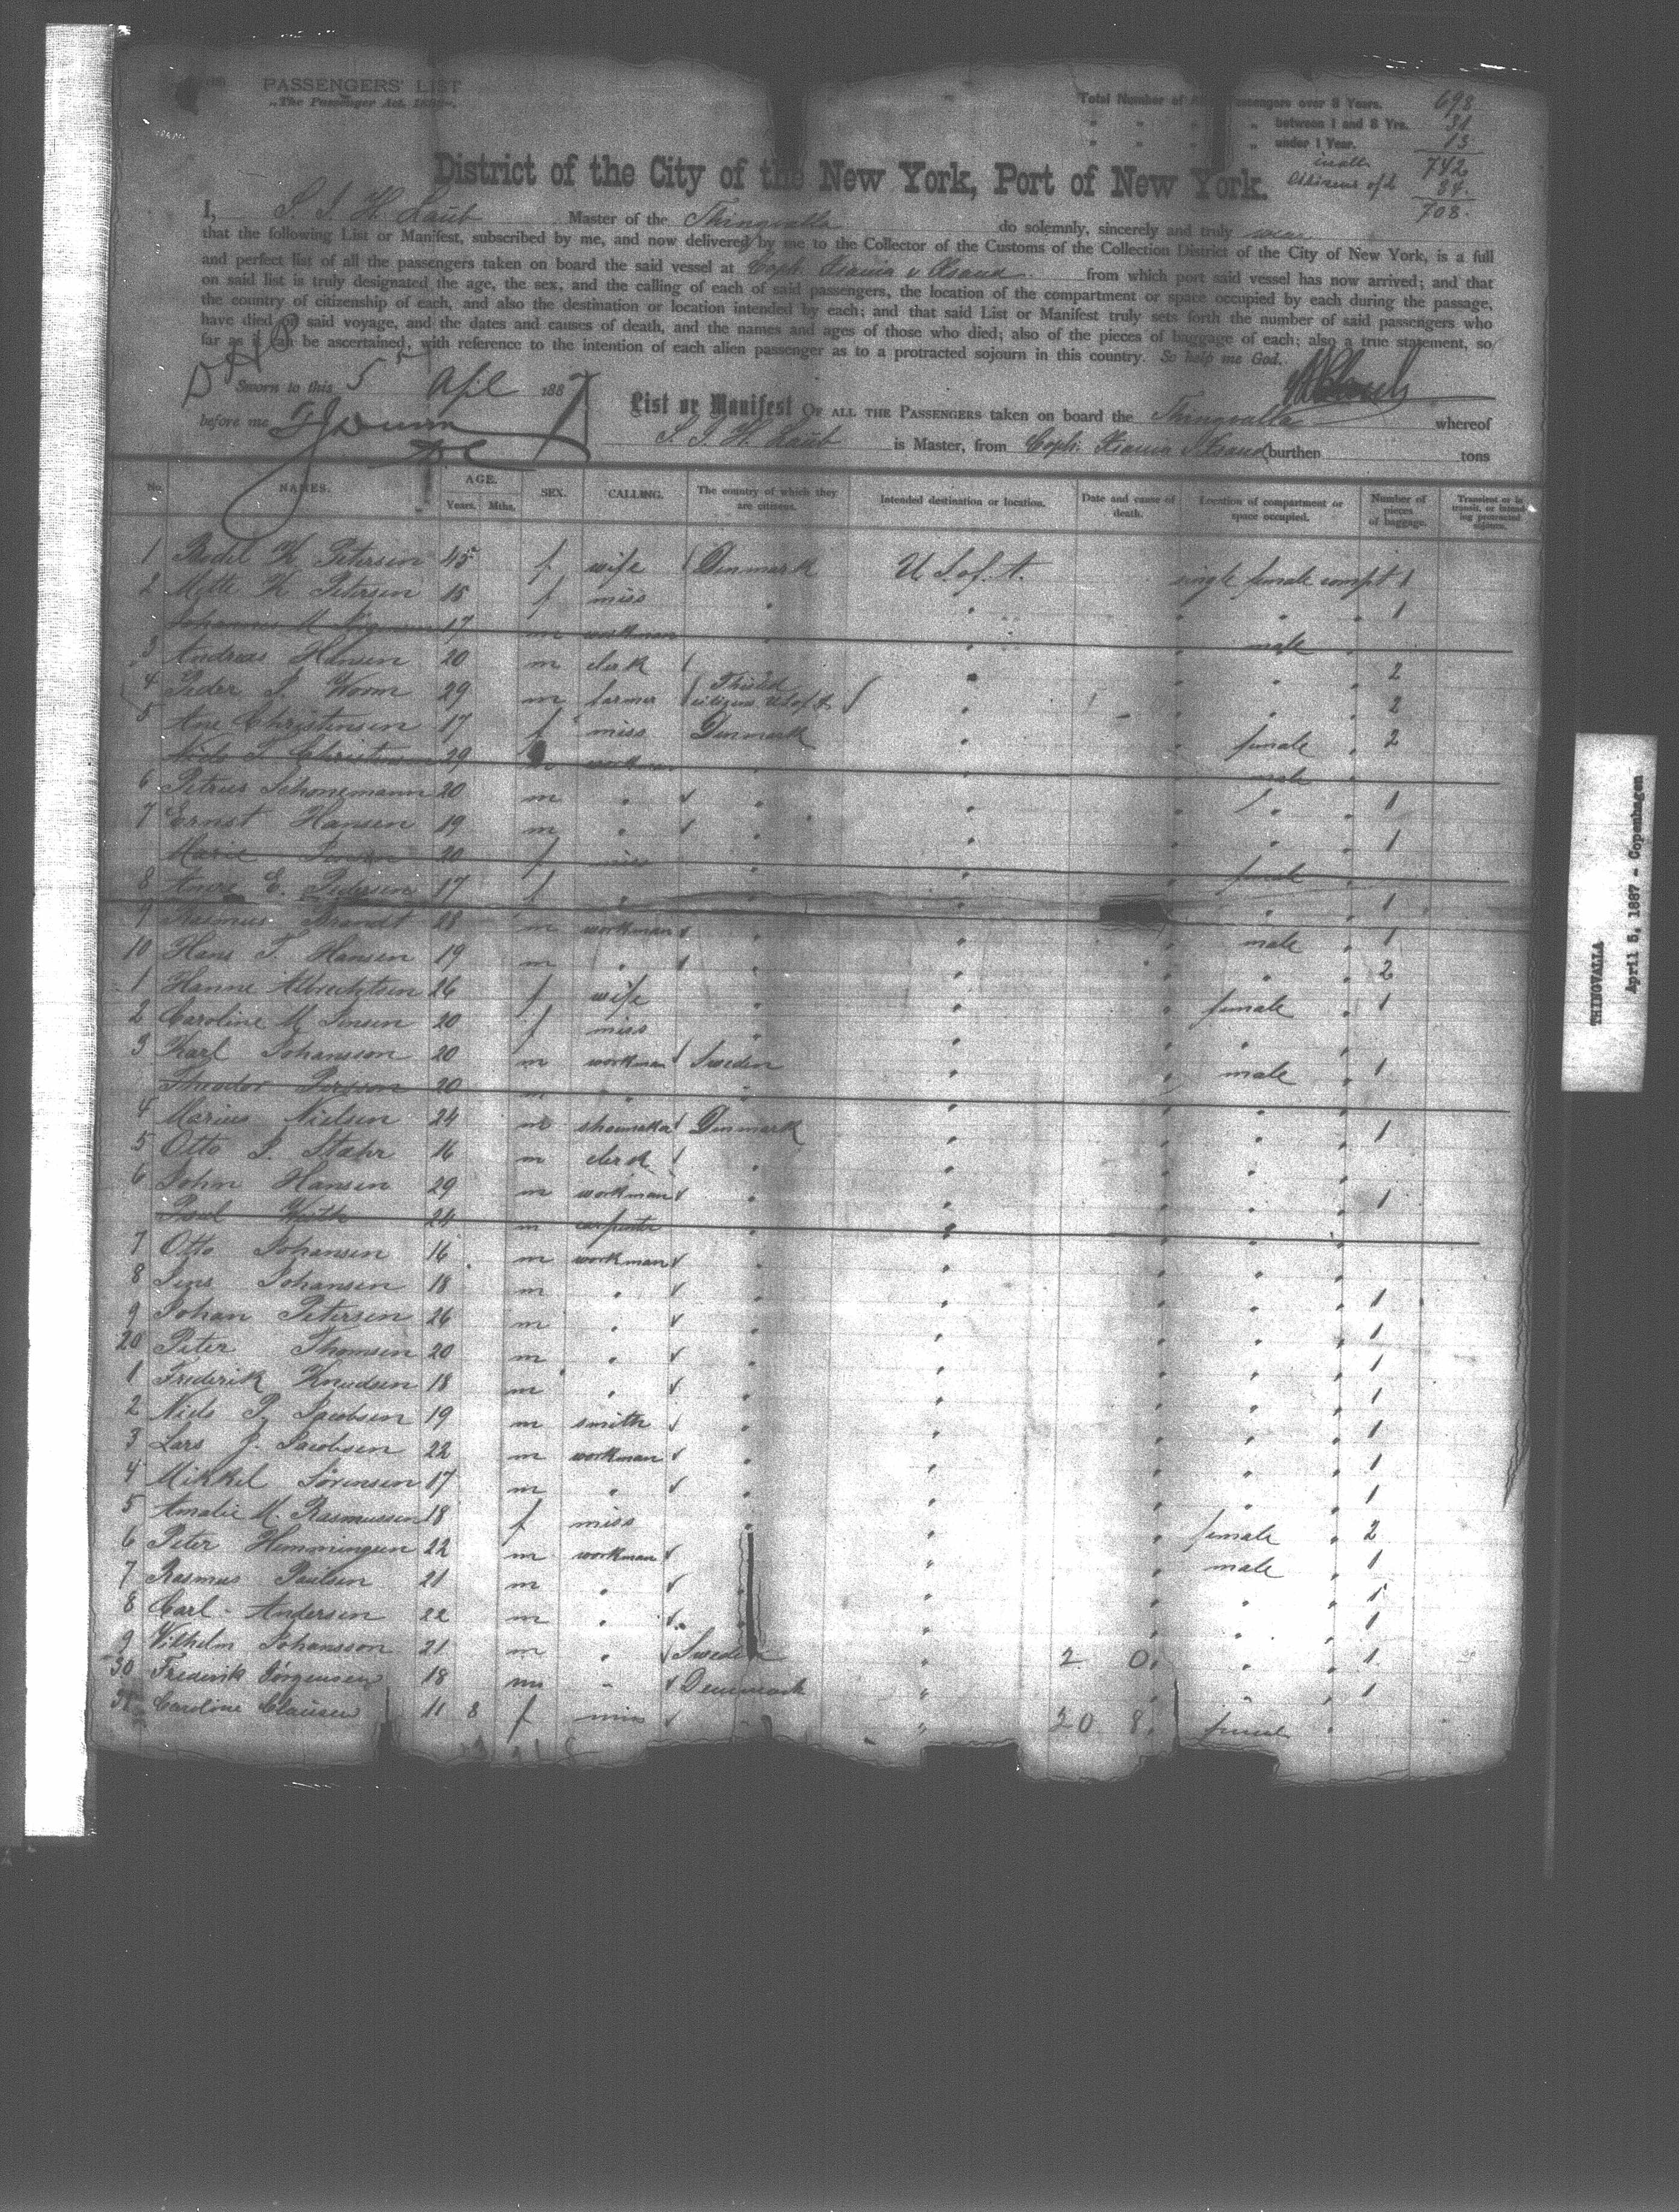 PASSENGERS' LIST
"The Passenger Act, 188
Total Number of Passengers over 8 Years. 698
" " " " between 1 and 8 Yrs. 31
" " " " under 1 Year. 13
in all 742
Citizens of 34
708.
District of the City of the New York, Port of New York.
I, S. J. H. Laub Master of the Thingvalla do solemnly, sincerely and truly swear
that the following List or Manifest, subscribed by me, and now delivered by me to the Collector of the Customs of the Collection District of the City of New York, is a full
and perfect list of all the passengers taken on board the said vessel at Coph. from which port said vessel has now arrived; and that
on said list is truly designated the age, the sex, and the calling of each of said passengers, the location of the compartment or space occupied by each during the passage,
the country of citizenship of each, and also the destination or location intended by each; and that said List or Manifest truly sets forth the number of said passengers who
have died on said voyage, and the dates and causes of death, and the names and ages of those who died; also of the pieces of baggage of each; also a true statement, so
far as it can be ascertained, with reference to the intention of each alien passenger as to a protracted sojourn in this country. So help me God.
Sworn to this 5 Apl 1887
before me
List or Manifest OF ALL THE PASSENGERS taken on board the Thingvalla whereof
S. J. H. Laub is Master, from Coph. burthen tons
No. NAMES. AGE. Years. Mths. SEX. CALLING. The country of which they are citizens. Intended destination or location. Date and cause of death. Location of compartment or space occupied. Number of pieces of baggage. Transient or in transit, or intending protracted sojourn.
1 Bodil K. Petersen 45 f wife Denmark U S of A. single female compt 1
2 Mette K Petersen 15 f miss " " " " " 1
Johannes M 17 m workman " " " male "
3 Andreas Hansen 20 m clerk " " " " 2
4 Peder J. Worm 29 m farmer citizen U S of A " " " " 2
5 Ane Christensen 17 f miss Denmark " " female " 2
Niels Christensen 29 m workman " " " male "
6 Petrus Schonemann 20 m " " " " " 1
7 Ernst Hansen 19 m " " " " " " 1
Marie Jensen 20 f miss " " " female "
8 Anne E. Pedersen 17 f " " " " " 1
9 Rasmus Brandt 28 m workman " " male " 1
10 Hans T. Hansen 19 m " " " " " " 2
1 Hanne Albrechtsen 26 f wife " " " female " 1
2 Caroline M Jensen 20 f miss " " " " "
3 Karl Johansson 20 m workman Sweden " " male " 1
Theodor Persson 20 m " " " " " "
4 Marius Nielsen 24 m shoemaker Denmark " " " " 1
5 Otto J. Stahr 16 m clerk " " " " "
6 John Hansen 29 m workman " " " " " 1
Poul 24 m carpenter " " " " "
7 Otto Johansen 16 m workman " " " " "
8 Jens Johansen 18 m " " " " " " 1
9 Johan Petersen 26 m " " " " " " 1
20 Peter Thomsen 20 m " " " " " " 1
1 Frederik Knudsen 18 m " " " " " " 1
2 Niels P. Jacobsen 19 m smith " " " " " 1
3 Lars J. Jacobsen 22 m workman " " " " " 1
4 Mikkel Sørensen 17 m " " " " " " 1
5 Amalie M. Rasmussen 18 f miss " " " female " 2
6 Peter Hemmingsen 22 m workman " " male " 1
7 Rasmus Paulsen 21 m " " " " " " 1
8 Carl Andersen 22 m " " " " " 1
9 Vilhelm Johansson 21 m " Sweden " 2 0 " " " 1
30 Frederik Jørgensen 18 m " Denmark " " " " 1
31 Caroline Clausen 11 8 f miss " " 20 8 " female "
THINGVALLA
April 5, 1887 - Copenhagen